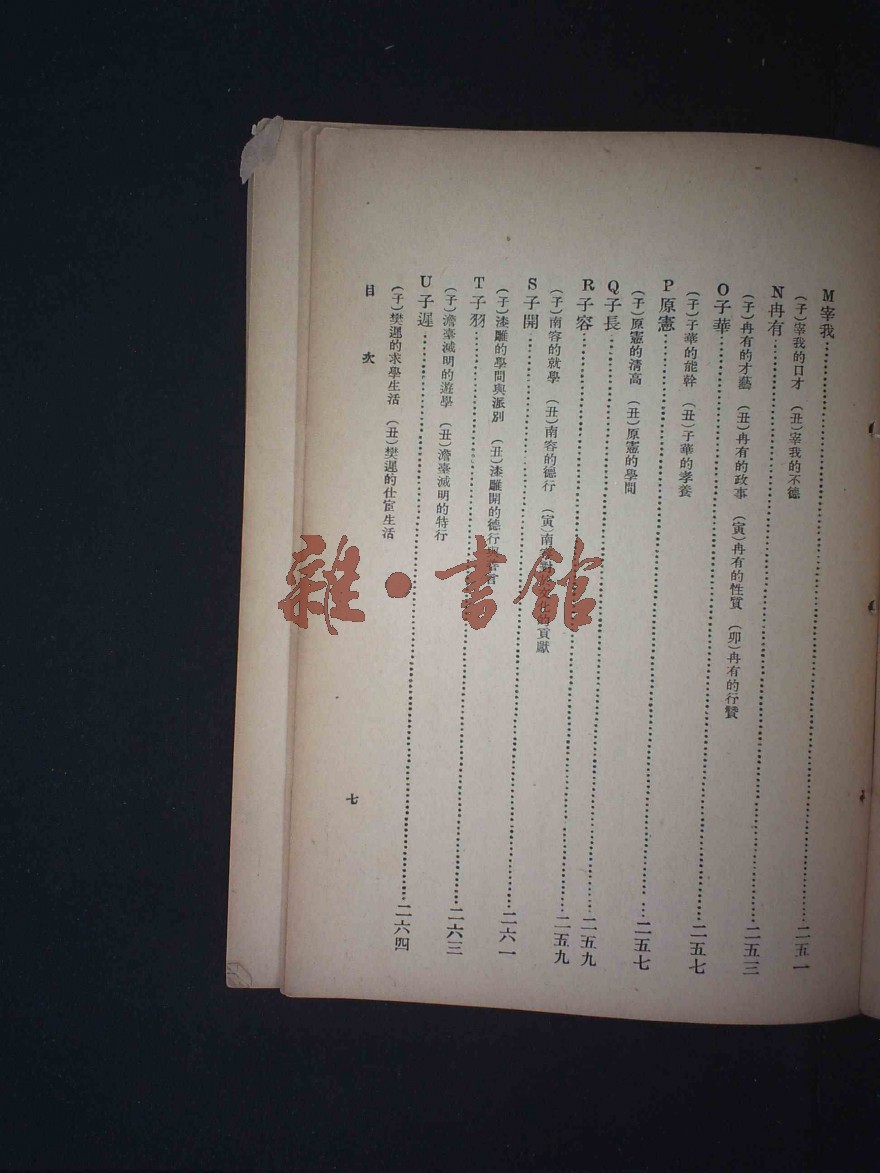 M宰我…………二五一
(子)宰我的口才 (丑)宰我的不德
N冉有…………二五三
(子)冉有的才藝 (丑)冉有的政事 (寅)冉有的性質 (卯)冉有的行贊
O子華…………二五七
(子)子華的能幹 (丑)子華的孝養
P原憲…………二五七
(子)原憲的清高 (丑)原憲的學問
Q子長…………二五九
R子容…………二五九
(子)南容的就學 (丑)南容的德行 (寅)南容文化的貢獻
S子開…………二六一
(子)漆雕的學問與派別 (丑)漆雕開的德行
T子羽…………二六三
(子)澹臺滅明的遊學 (丑)澹臺滅明的特行
U子遲…………二六四
(子)樊遲的求學生活 (丑)樊遲的仕宦生活
目次
七
雜·書館